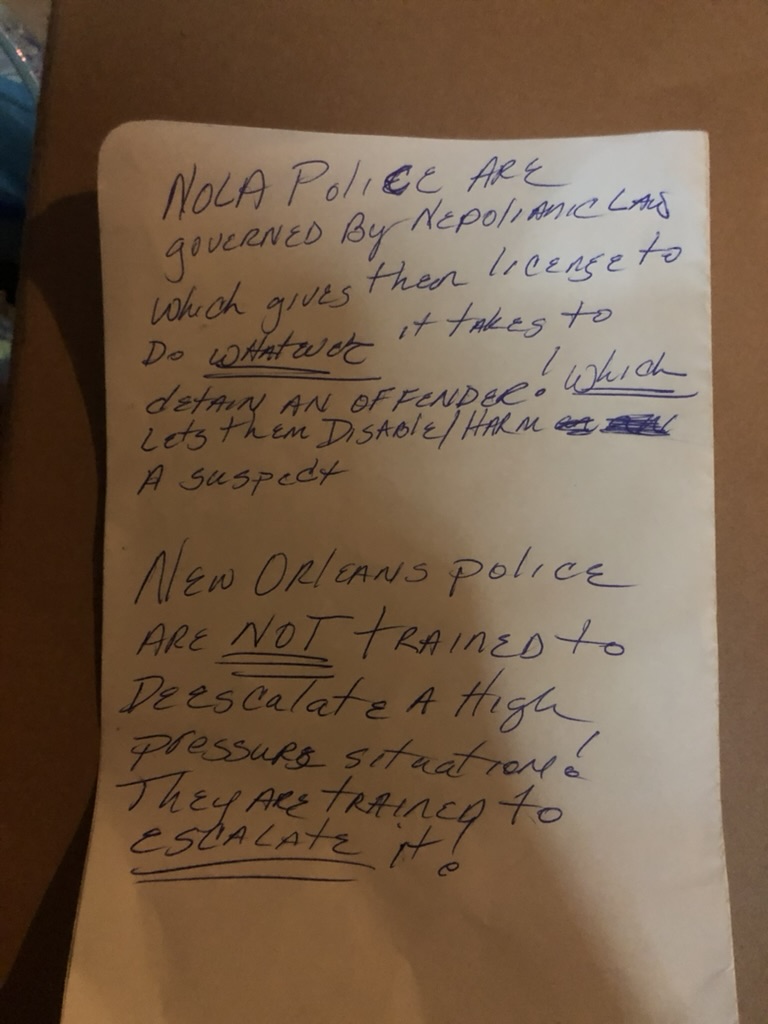 NOLA POLICE ARE
GOVERNED BY NEPOLIANIC LAW
WHICH GIVES THEM LICENSE TO
DO WHATEVER IT TAKES TO
DETAIN AN OFFENDER! WHICH
LETS THEM DISABLE/HARM
A SUSPECT
NEW ORLEANS POLICE
ARE NOT TRAINED TO
DEESCALATE A HIGH
PRESSURE SITUATION!
THEY ARE TRAINED TO
ESCALATE IT!